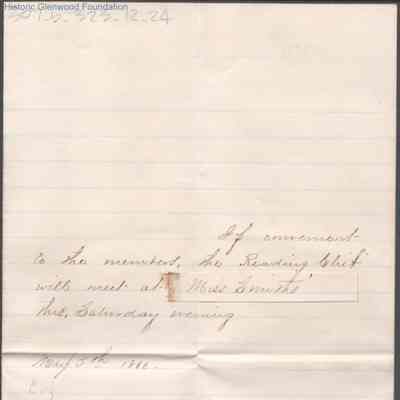 Historic Glenwood Foundation
If convenient
to the members, the Reading Club
will meet at Miss Smiths'
this, Saturday evening
May 5th